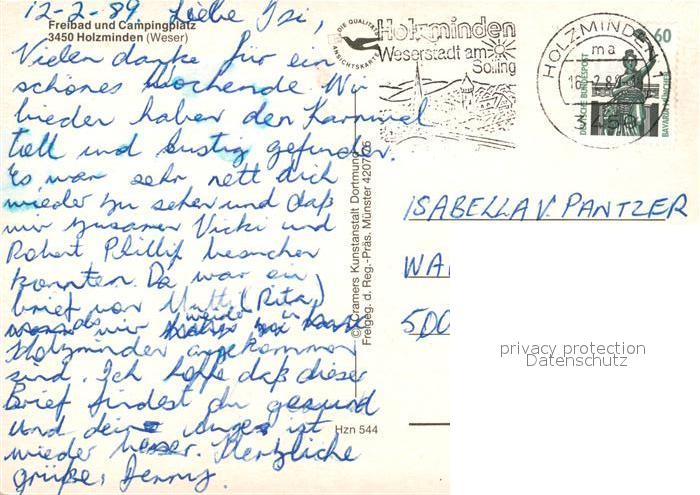 12-2-89 Liebe Isi,
Freibad und Campingplatz
3450 Holzminden (Weser)
Vielen danke für ein
schönes wochende. Wir
beider haben den Karnival
toll und lustig gefunden.
Es war sehr nett dich
wieder zu sehen und daß
wir zusammen Vicki und
Robert Phillip besuchen
konnten. Da war ein
brief von Mutti (Rita)
als wir wieder in
Holzminden angekommen
sind. Ich hoffe daß dieser
Brief findest du gesund
und deine auge ist
wieder besser. Herzliche
grüße, Jenny.
DIE QUALITÄTS
ANSICHTSKARTE
© Cramers Kunstanstalt Dortmund
Freigeg. d. Reg.-Präs. Münster 4207/76
Hzn 544
Holzminden
Weserstadt am
Solling
HOLZMINDEN 1
ma
3450
60
DEUTSCHE BUNDESPOST
BAVARIA MÜNCHEN
ISABELLA V. PANTZER
WA
500
privacy protection
Datenschutz